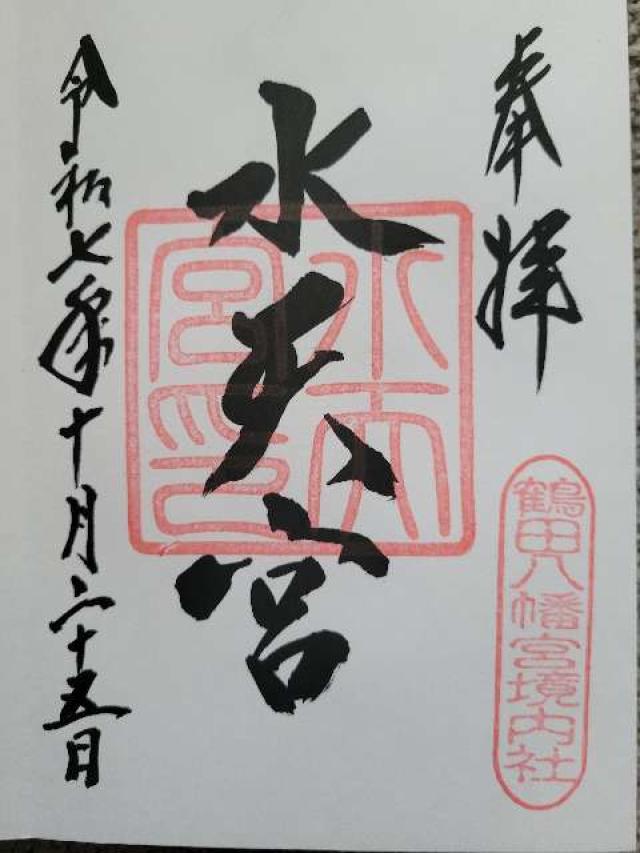 奉拝
鶴田八幡宮境内社
水天宮
水天宮印
令和七年十月二十五日